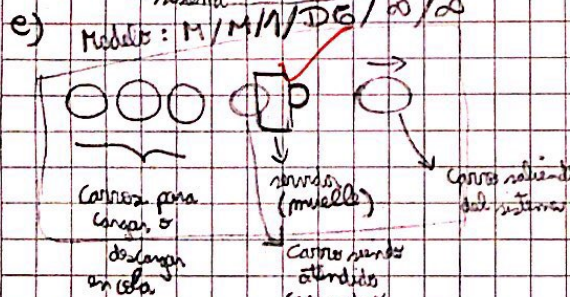 e) Modelo: M/M/1/DG/∞/∞
Carros para
cargar o
descargar
en cola
servidor
(muelle)
Carro siendo
atendido
Carros saliendo
del sistema